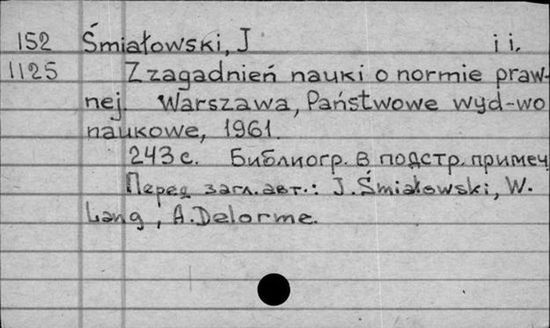 152 Śmiałowski, J i i.
1125 Z zagadnień nauki o normie praw-
nej. Warszawa, Państwowe wyd-wo
naukowe, 1961.
243 с. Библиогр. в подстр. примеч
Перед загл. авт.: J. Śmiałowski, W.
Lang, A. Delorme.